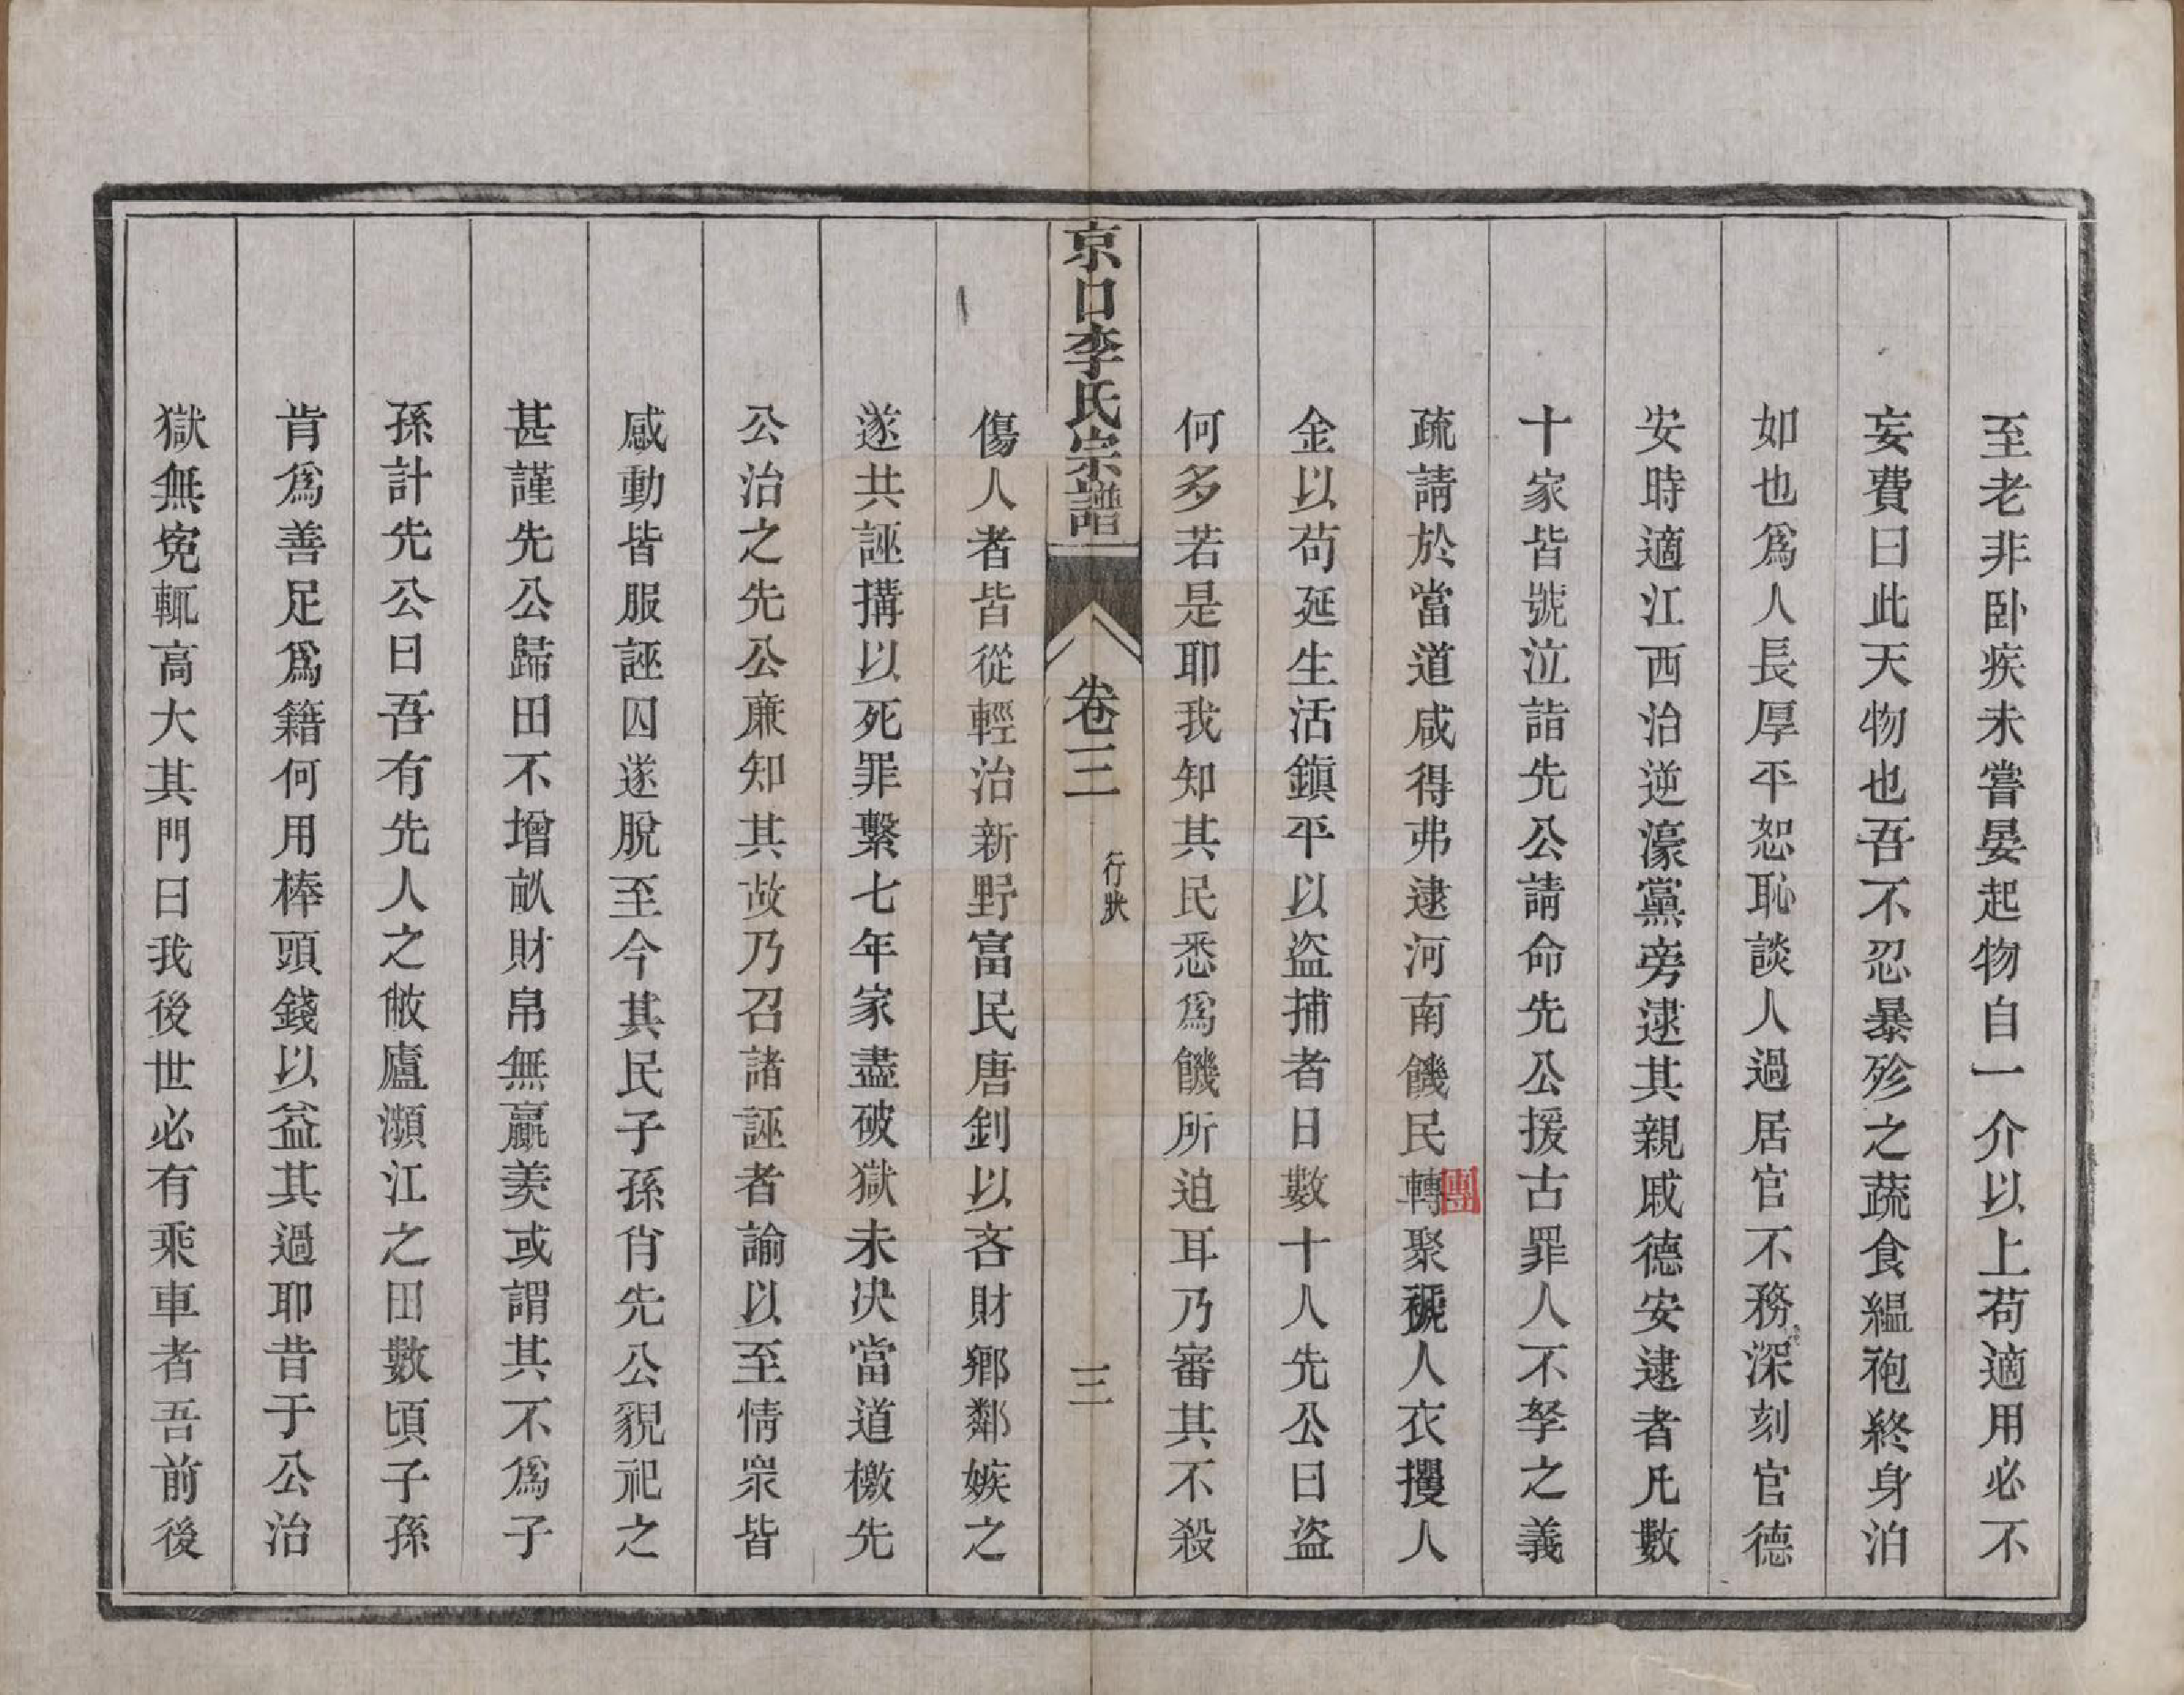 至老非卧疾未嘗晏起物自一介以上苟適用必不
妄費曰此天物也吾不忍暴殄之蔬食緼袍終身泊
如也爲人長厚平恕恥談人過居官不務深刻官德
安時適江西治逆濠黨旁逮其親戚德安逮者凡數
十家皆號泣詣先公請命先公援古罪人不孥之義
疏請於當道咸得弗逮河南饑民轉聚褫人衣攫人
團
金以苟延生活鎮平以盜捕者日數十人先公曰盜
何多若是耶我知其民悉爲饑所迫耳乃審其不殺
京口李氏宗譜
卷三
行狀
三
傷人者皆從輕治新野富民唐釗以吝財鄕鄰嫉之
遂共誣搆以死罪繫七年家盡破獄未決當道檄先
公治之先公亷知其故乃召諸誣者諭以至情衆皆
感動皆服誣囚遂脫至今其民子孫肖先公貌祀之
甚謹先公歸田不增畝財帛無贏羨或謂其不爲子
孫計先公曰吾有先人之敝廬瀕江之田數頃子孫
肯爲善足爲籍何用棒頭錢以益其過耶昔于公治
獄無寃輒高大其門曰我後世必有乘車者吾前後